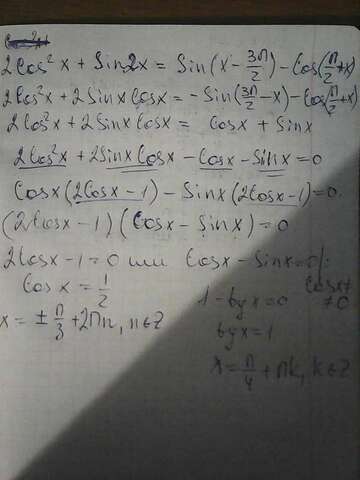 2Cos²x + Sin2x = Sin(x - 3π/2) - Cos(π/2 + x)
2Cos²x + 2Sinx Cosx = -Sin(3π/2 - x) - Cos(π/2 + x)
2Cos²x + 2Sinx Cosx = Cosx + Sinx
2Cos²x + 2Sinx Cosx - Cosx - Sinx = 0
Cosx(2Cosx - 1) - Sinx(2Cosx - 1) = 0
(2Cosx - 1)(Cosx - Sinx) = 0
2Cosx - 1 = 0 или Cosx - Sinx = 0 |: Cosx ≠ 0
Cosx = 1/2
1 - tgx = 0
x = ± π/3 + 2πn, n∈Z
tgx = 1
x = π/4 + πk, k∈Z